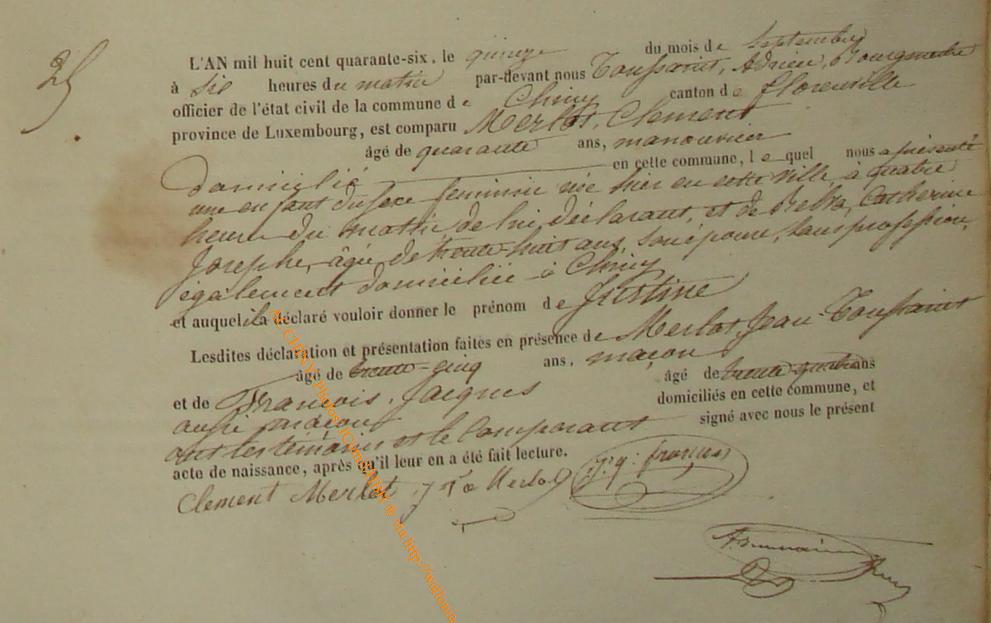 25
L'AN mil huit cent quarante-six, le quinze du mois de Septembre
à six heures du matin par-devant nous Toussaint, Adrien, Bourgmestre
officier de l'état civil de la commune de Chiny canton de florenville
province de Luxembourg, est comparu Merlot, Clement
âgé de quarante ans, manouvrier
domicilié en cette commune, lequel nous a présenté
une enfant du sexe feminin née hier en cette ville à quatre
heures du matin de lui déclarant, et de Catherine
Josephe, âgée de trente-huit ans, son épouse, sans profession,
également domiciliée à Chiny
et auquel il a déclaré vouloir donner le prénom de Justine
Lesdites déclaration et présentation faites en présence de Merlot, Jean-Toussaint
âgé de trente-cinq ans, maçon
et de François, Jacques âgé de trente-quatre ans
aussi maçon domiciliés en cette commune, et
ont les témoins et le Comparant signé avec nous le présent
acte de naissance, après qu'il leur en a été fait lecture.
Clement Merlot J To Merlot Jq: françois